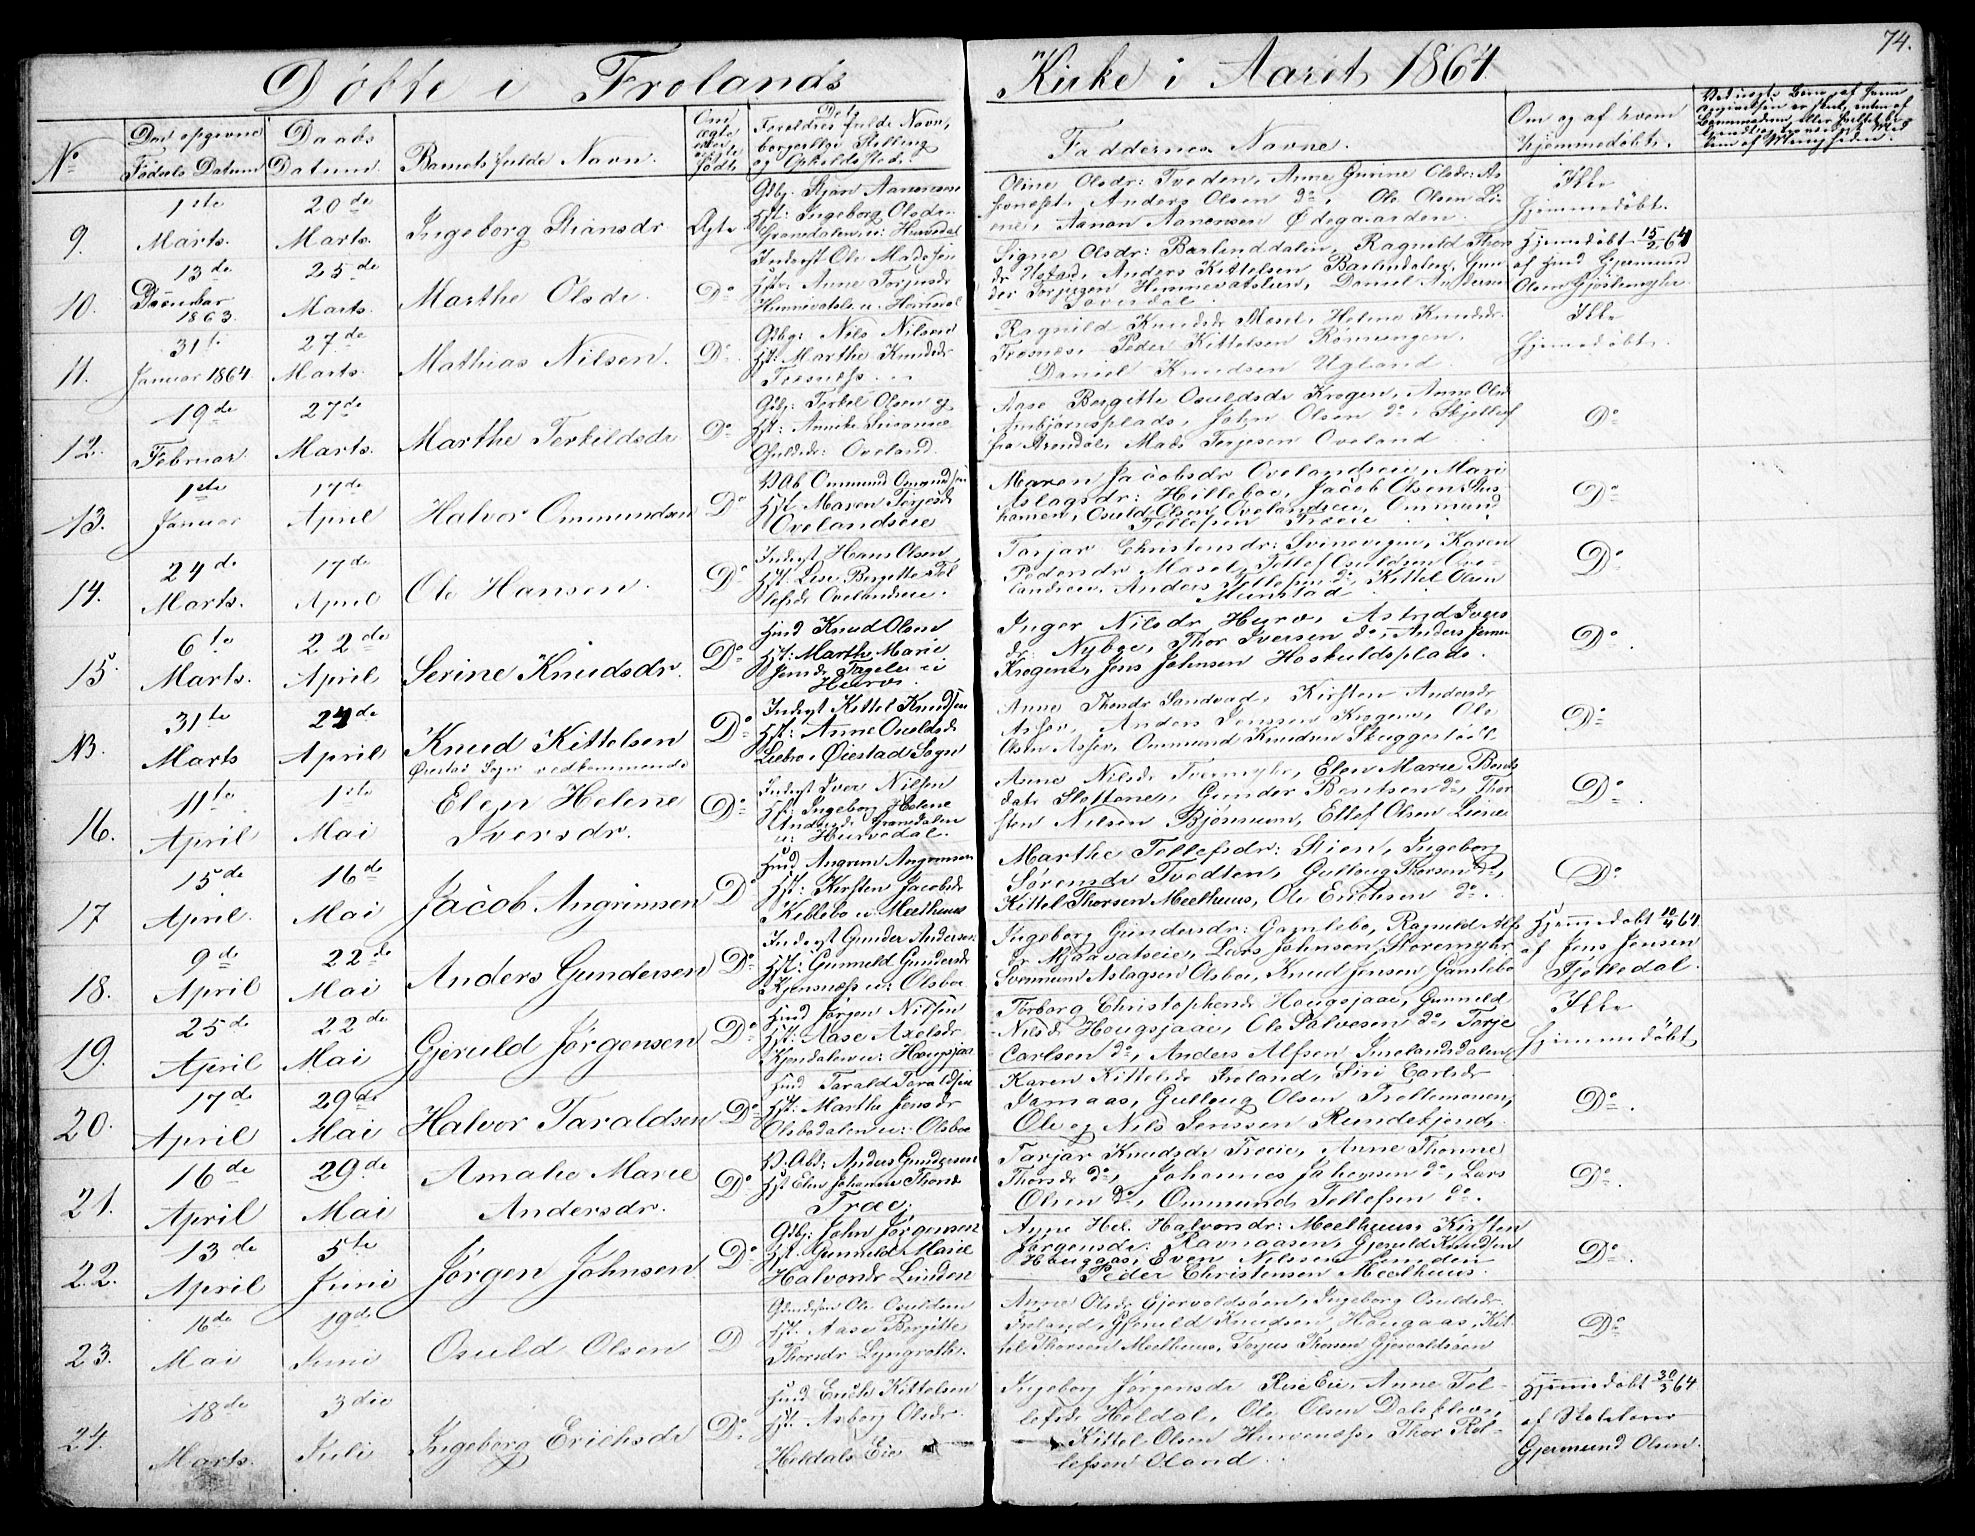 Døbte i Frolands Kirke i Aaret 1864
74.
No
Den opgivne Fødsels Datum
Daabs Datum
Barnets fulde Navn.
Om ægte eller uægte født
Dets Forældres fulde Navn, borgerlige Stilling og Opholdssted.
Faddernes Navne.
Om og af hvem hjemmedøbt.
9.
1ste Marts.
20de Marts.
Ingeborg Stiansdr
Ægte
Gbg. Stian Aanensen
Hst: Ingeborg Olsdr.
Grandalen u: Hurvedal
Oline Olsdr: Tveden, Anne Gurine Olsdr:
Anders Olsen do, Ole Olsen Li-
ene, Aanon Aanensen Ødegaarden.
Ikke hjemmedøbt.
10.
13de December 1863.
25de Marts.
Marthe Olsdr.
Do
Inderst Ole Madssen
Hst: Anne Torjusdr
Signe Olsdr: Barlinddalen, Ragnild Thor
dr Ufstad, Anders Kittelsen Barlindalen, Gun
der Torjussen Himmevatslien, Daniel Anderse
Hjemdøbt 15/2 64
af Hmd Gjermund
Olsen
11.
31te Januar 1864.
27de Marts.
Mathias Nilsen.
Do
Gbg: Nils Nilsen
Hst: Marthe Knudsdr
Tresnæss
Ragnild Knudsdr Mosel, Helene Knudsdr.
Tresnæs, Peder Kittelsen Rønningen,
Daniel Knudsen Ugland.
Ikke
hjemedøbt.
12.
19de Februar.
27de Marts.
Marthe Terkildsdr
Do
Gbg: Terkel Olsen og
Hst: Annike Susanne
Osuldsdr: Oveland.
Aase Bergitte Osuldsdr Krogen, Anne Olsdr
Ambjørnsplads, John Olsen do,
fra Arendal, Mads Terjesen Oveland
Do
13.
1ste Januar
17de April
Halvor Ommundsen
Do
Pl Ab Ommund Omundsen
Hst Maren Terjesdr
Ovelandseie
Maren Jacobsdr Ovelandseie, Mari
Aslagsdr: Hilleboe, Jacob Olsen
Osuld Olsen Ovelandseie, Ommund
Tellefsen Træeie
Do
14.
24de Marts.
17de April
Ole Hansen.
Do
Inderst Hans Olsen
Hst. Lise Bergitte Tel
lefsdr Ovelandseie.
Tarjar Christensdr: Svinevigen, Karen
Pedersdr Mosel, Tellef Osuldsen Ove-
landseie, Anders Tellefsen do, Kittel Olsen
Mimstad
Do
15.
6te Marts.
22de April
Serine Knudsdr.
Do
Hmd Knud Olsen
Hst: Marthe Marie
Hurv.
Inger Nilsdr Hurv, Astrid Ivers
dr: Nyboe, Thor Iversen do, Anders
Krogene, Jens Johnsen Høskuldsplads.
Do
NB.
31te Marts
24de April
Knud Kittelsen
Øiestad Sogn vedkommende
Do
Inderst Kittel Knudsen
Hst: Anne Osuldsdr
Liebro, Øiestad Sogn
Anne Thordr Sandved, Kirsten Andersdr
Asser, Anders Jenssen Krogene, Ole
Olsen Asser, Ommund Knudsen
Do
16.
11te April
1ste Mai
Elen Helene
Iversdr.
Do
Inderst Iver Nilsen
Hst: Ingeborg Helene
Andersdr Grandalen
u: Hurvedal.
Anne Nilsdr Tvermyhr, Elen Marie Bents
datr Slottene, Gunder Bentsen do, Thor
sten Nilsen Bjørnum, Ellef Olsen Liene
Do
17
15de April.
16de Mai
Jacob Angrimsen
Do
Hmd Angrim Angrimsen
Hst: Kirsten Jacobsdr
Kiblebo u Meelhuus
Marthe Tellefsdr: Stien, Ingeborg
Sørensdr Tvedten, Gulloug Thorsen do,
Kittel Thorsen Meelhuus, Ole Erichsen do.
Do
18.
9de April
22de Mai
Anders Gundersen
Do
Inderst Gunder Andersen
Hst: Gunneld Gundersdr
Kjensnæss u: Olsboe
Ingeborg Gundersdr: Gamlebo, Ragnild Alfs
dr Mjaavatseie, Lars Johnsen Støremyhr
Svenmund Aslagsen Olsboe, Knud Jensen Gamlebo
Hjemedøbt 10/4 64
af Jens Jensen
Fjelledal.
19.
25de April
22de Mai
Gjeruld Jørgensen
Do
Hmd Jørgen Nilsen
Hst: Aase Axelsdr
Kjendalen u: Hougsjaa
Torborg Christophersdr Hougsjaae, Gunneld
Nilsdr Hougsjaae, Ole Salvesen do, Terje
Carlsen do, Anders Alfsen Imelandsdalen
Ikke
hjemmedøbt
20.
17de April
29de Mai
Halvor Taraldsen
Do
Hmd Tarald Taraldsen
Hst: Marthe Jensdr
Olsbodalen u: Olsboe
Karen Kittelsdr Froland, Siri Carlsdr
Jamaas, Gulloug Olsen Treltemonen,
Ole og Nils Jenssen Rundekjend.
Do.
21.
16de April
29de Mai
Amalie Marie
Andersdr.
Do
Pl. Abd: Anders Gundersen
Hst Elen Johanne Thorsdr
Træe,
Tarjar Knudsdr Træeie, Anne Thomine
Thorsdr do, Johannes Jahensen do, Lars
Olsen do, Ommund Tellefsen do.
Do.
22.
13de April
5te Juni
Jørgen Johnsen
Do
Gbg: John Jørgensen
Hst: Gunneld Marie
Halvorsdr Linden
Anne Hel. Halvorsdr: Meelhuus Kirsten
Jørgensdr. Ravnaasen, Gjeruld Knudsen
Hougaas, Even Nilssen Lunden
Peder Christensen Meelhuus.
Do
23.
16de Mai
19de Juni
Osuld Olsen
D
Ole Osuldsen
Hst. Aase Bergitte
Thorsdr Lyngroth.
Anne Olsdr Gjervoldsøen, Ingeborg Osuldsdr.
Froland, Gjeruld Knudsen, Hougaas, Kit-
tel Thorsen Meelhuus, Torjus Thorsen Gjervoldsøen
Do
24.
18de Marts.
3die Juli
Ingeborg Erichsdr
Do
Hmd Erich Kittelsen
Hst. Asborg Olsdr.
Heldals Eie
Ingeborg Jørgensdr Rise Eie, Anne Tel-
lefsdr Heldal, Ole Olsen Dalekleven,
Kittel Olsen Hurvenæss, Thor Rol-
lefsen Oland.
Hjemedøbt 30/3 64
af
Gjermund Olsen.